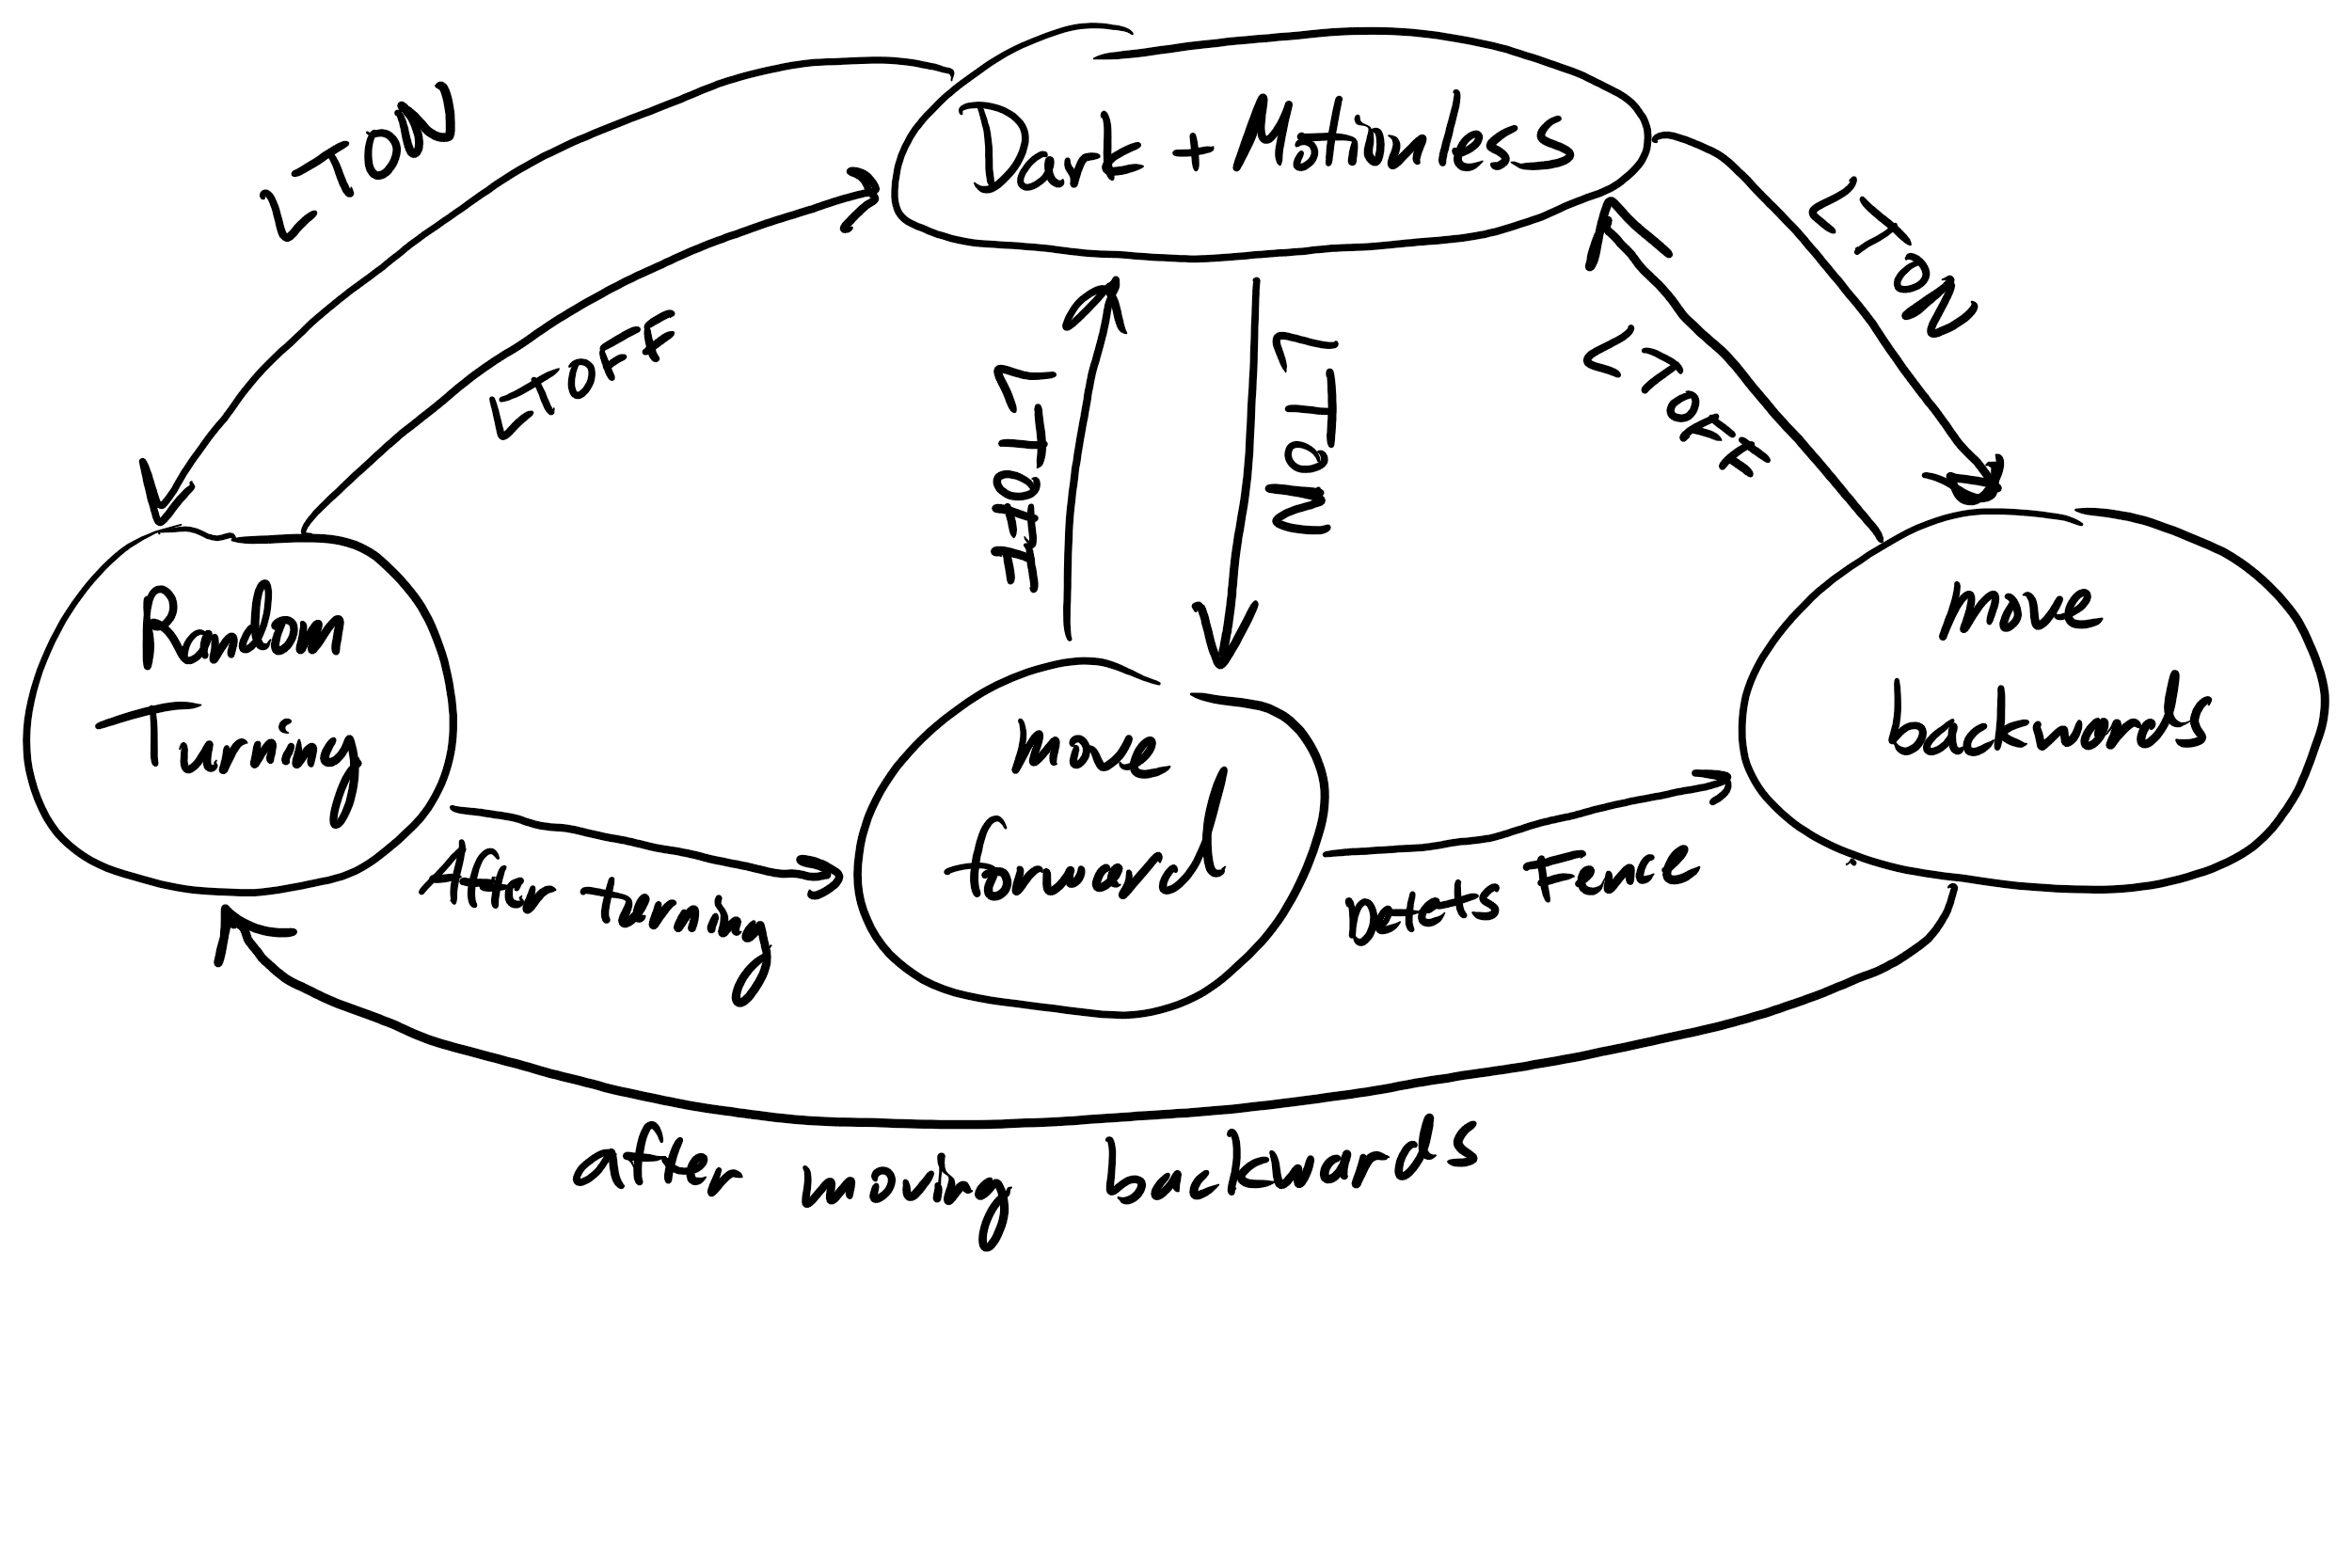 Dark + Motionless
LTON
LTON
LTOFF
LTOFF
LTOFF
LTON
Random
Turning
move
forward
move
backwards
After turning
Detects Fence
after moving backwards